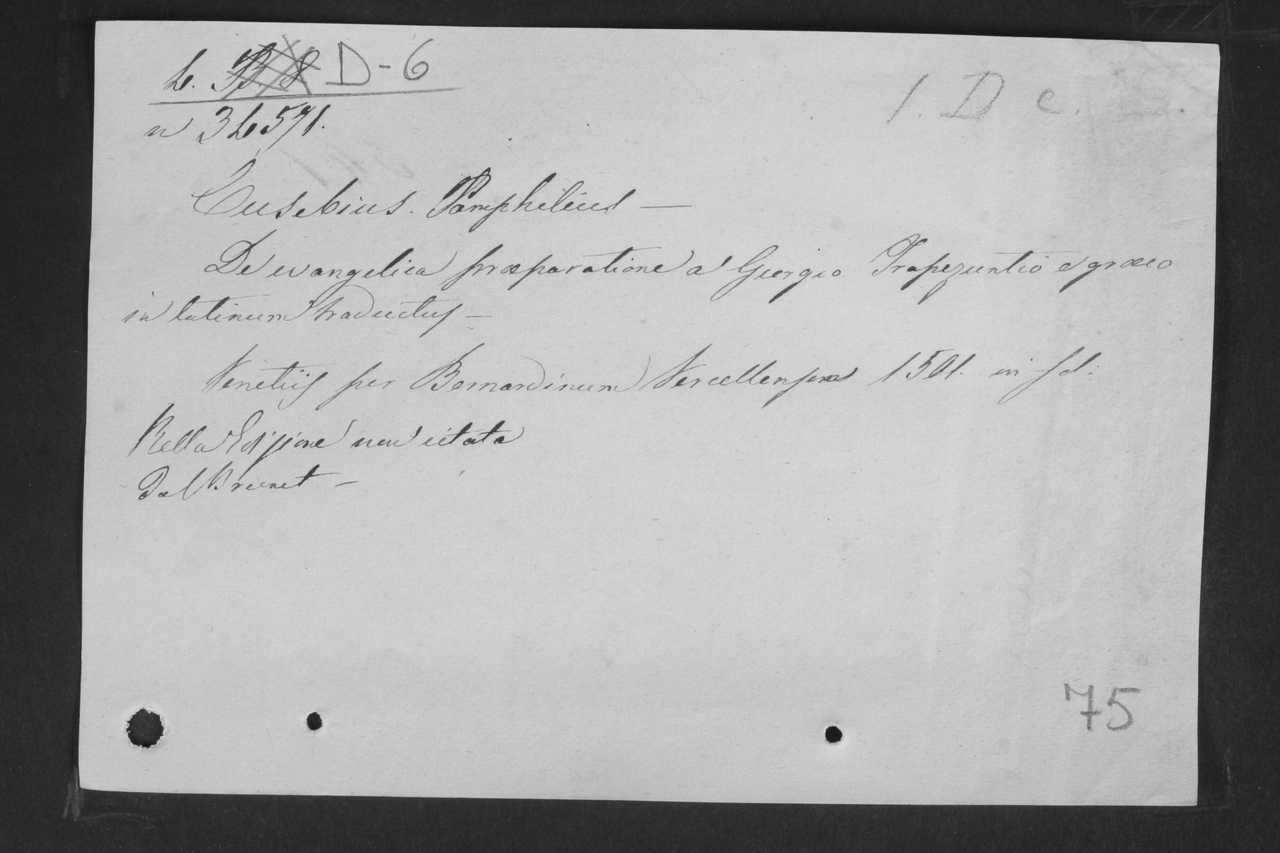 L. D-6
1. D c.
n 36571.
Eusebius. Pamphilius —
De evangelica præparatione a' Georgio Trapezuntio e græco
in latinum traductus —
Venetiis per Bernardinum Vercellensem 1501. in fol:
Bella Edizione non citata
Dal Brunet —
75